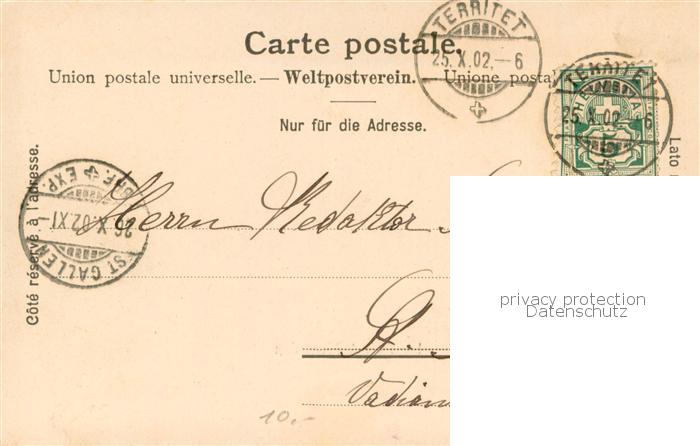 Carte postale.
Union postale universelle. — Weltpostverein. — Unione posta
Nur für die Adresse.
TERRITET
25.X.02.–6
TERRITET
25.X.02.–6
HELVETIA
5
Côté réservé à l'adresse.
Lato
ST GALLEN
26.X.02.XI–
BRF. EXP.
Herrn Redaktor
St.
Vadian
10.-
privacy protection
Datenschutz